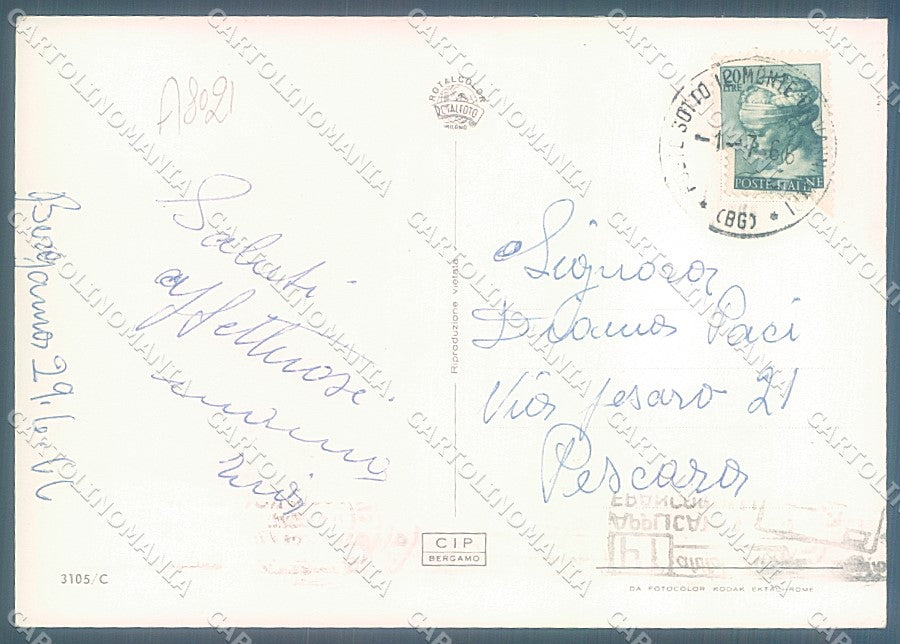 A 8021
ROTALCOLOR
ROTALFOTO
MILANO
20
LIRE
POSTE ITALIANE
SOTTO IL MONTE
1-7-66
(BG)
Bergamo 29.6.
Saluti
affettuosi
Riproduzione vietata
Signora
Diana Paci
Via Pesaro 21
Pescara
CIP
BERGAMO
3105/C
DA FOTOCOLOR KODAK EKTACHROME
CARTOLINOMANIA